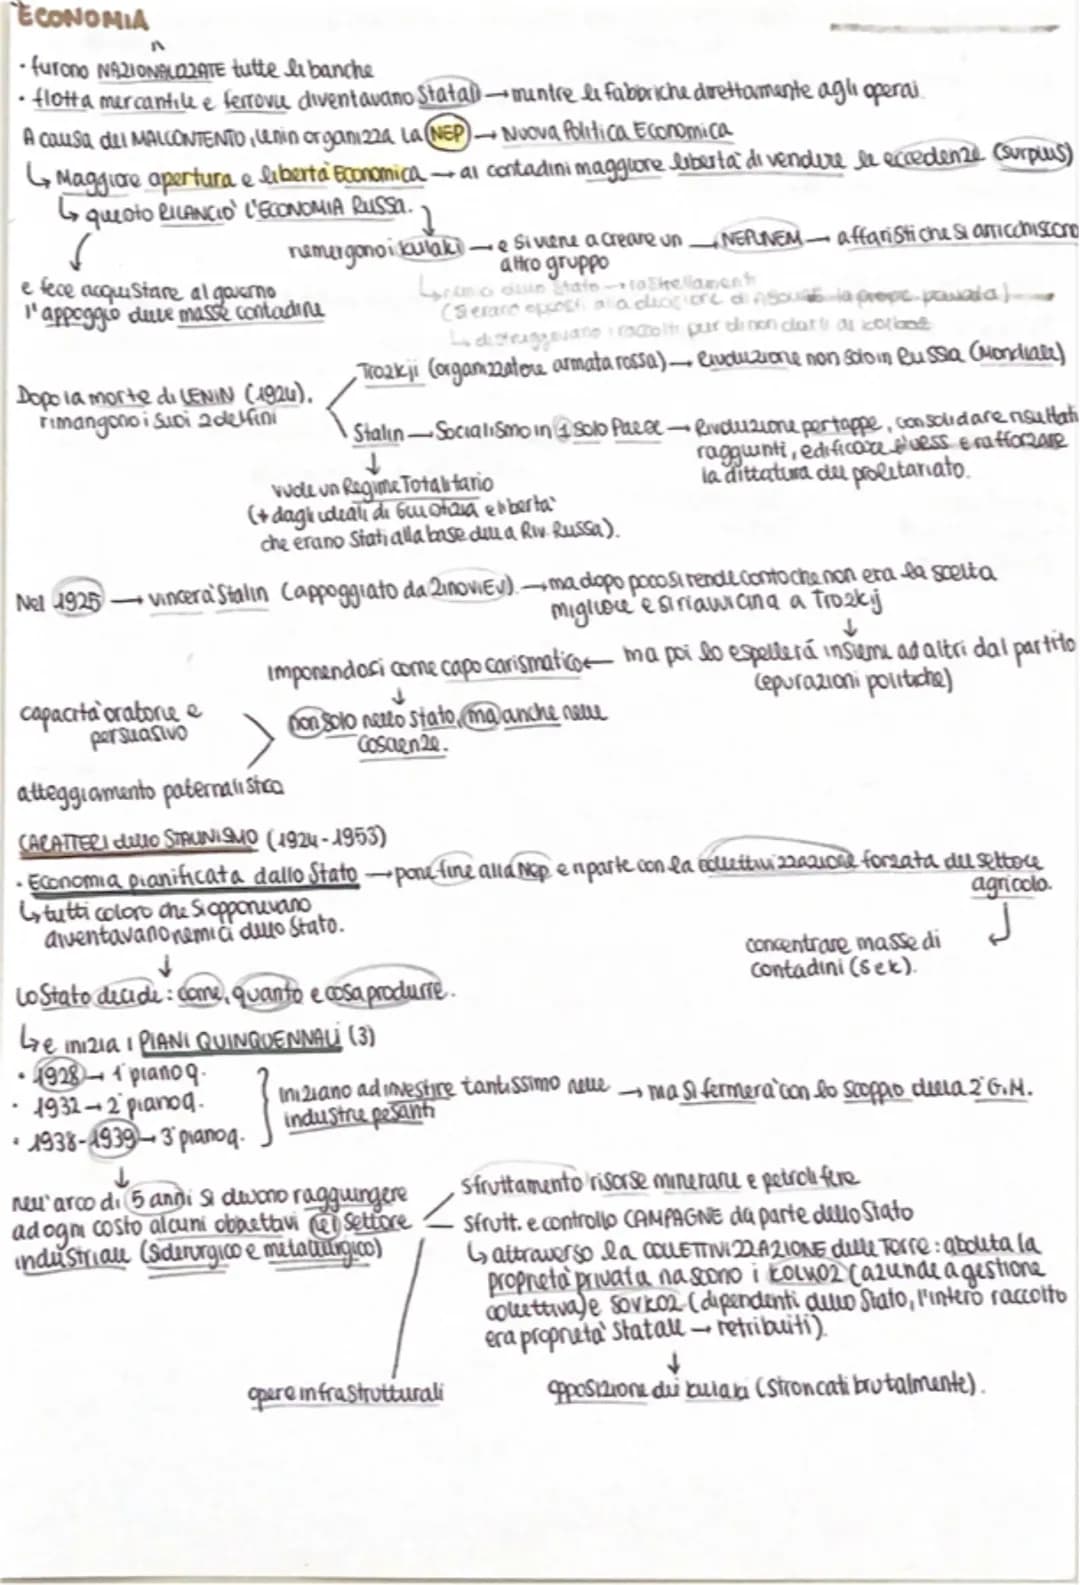 ECONOMIA
• furono NAZIONALIZZATE tutte le banche
• flotta mercantile e ferrovie diventavano Statali → mentre le fabbriche direttamente agli operai.
A causa del MALCONTENTO, Lenin organizza la NEP → Nuova Politica Economica
↳ Maggiore apertura e libertà Economica → ai contadini maggiore libertà di vendere le eccedenze (surplus)
↳ questo RILANCIÒ L'ECONOMIA RUSSA.
riemergono i kulaki → e si viene a creare un altro gruppo → NEPMNEM → affaristi che si arricchiscono
e fece acquistare al governo
l'appoggio delle masse contadine
nemici dello Stato → rastrellamenti
(Si erano opposti alla decisione di la propr. privata)
↳ distruggevano i raccolti pur di non darli ai kolhoz
Dopo la morte di LENIN (1924),
rimangono i suoi 2 delfini
Trozkji (organizzatore armata rossa) → Rivoluzione non solo in Russia (Mondiale)
Stalin → Socialismo in 1 solo Paese → Rivoluzione per tappe, consolidare risultati
raggiunti, edificare l'uess e rafforzare
la dittatura del proletariato.
vuole un Regime Totalitario
(≠ dagli ideali di Giustizia e libertà
che erano Stati alla base della Riv. Russa).
Nel 1925 → vincerà Stalin (appoggiato da Zinoviev) → ma dopo poco si rende conto che non era la scelta
migliore e si riavvicina a Trozkij
imponendosi come capo carismatico ← ma poi lo espellerá insieme ad altri dal partito
(epurazioni politiche)
capacità oratorie e
persuasivo
non solo nello stato, ma anche nelle
coscienze.
atteggiamento paternalistico
CARATTERI dello STALINISMO (1924-1953)
• Economia pianificata dallo Stato → pone fine alla Nep e riparte con la collettivizzazione forzata del settore
agricolo.
↳ tutti coloro che si opponevano
diventavano nemici dello Stato.
concentrare masse di
contadini (sek).
Lo Stato decide: come, quanto e cosa produrre.
↳ e inizia i PIANI QUINQUENNALI (3)
• 1928 → 1° piano q.
• 1932 → 2° piano q.
• 1938-1939 → 3° piano q.
iniziano ad investire tantissimo nelle
industrie pesanti → ma si fermerà con lo scoppio della 2° G.M.
nell'arco di 5 anni si devono raggiungere
ad ogni costo alcuni obiettivi nel settore
industriale (siderurgico e metallurgico)
sfruttamento risorse minerarie e petrolifere
sfrutt. e controllo CAMPAGNE da parte dello Stato
↳ attraverso la COLLETTIVIZZAZIONE delle Terre: abolita la
proprietà privata nascono i KOLKOZ (aziende a gestione
collettiva) e SOVKOZ (dipendenti dello Stato, l'intero raccolto
era proprietà statale → retribuiti).
opere infrastrutturali
opposizione dei kulaki (stroncati brutalmente).